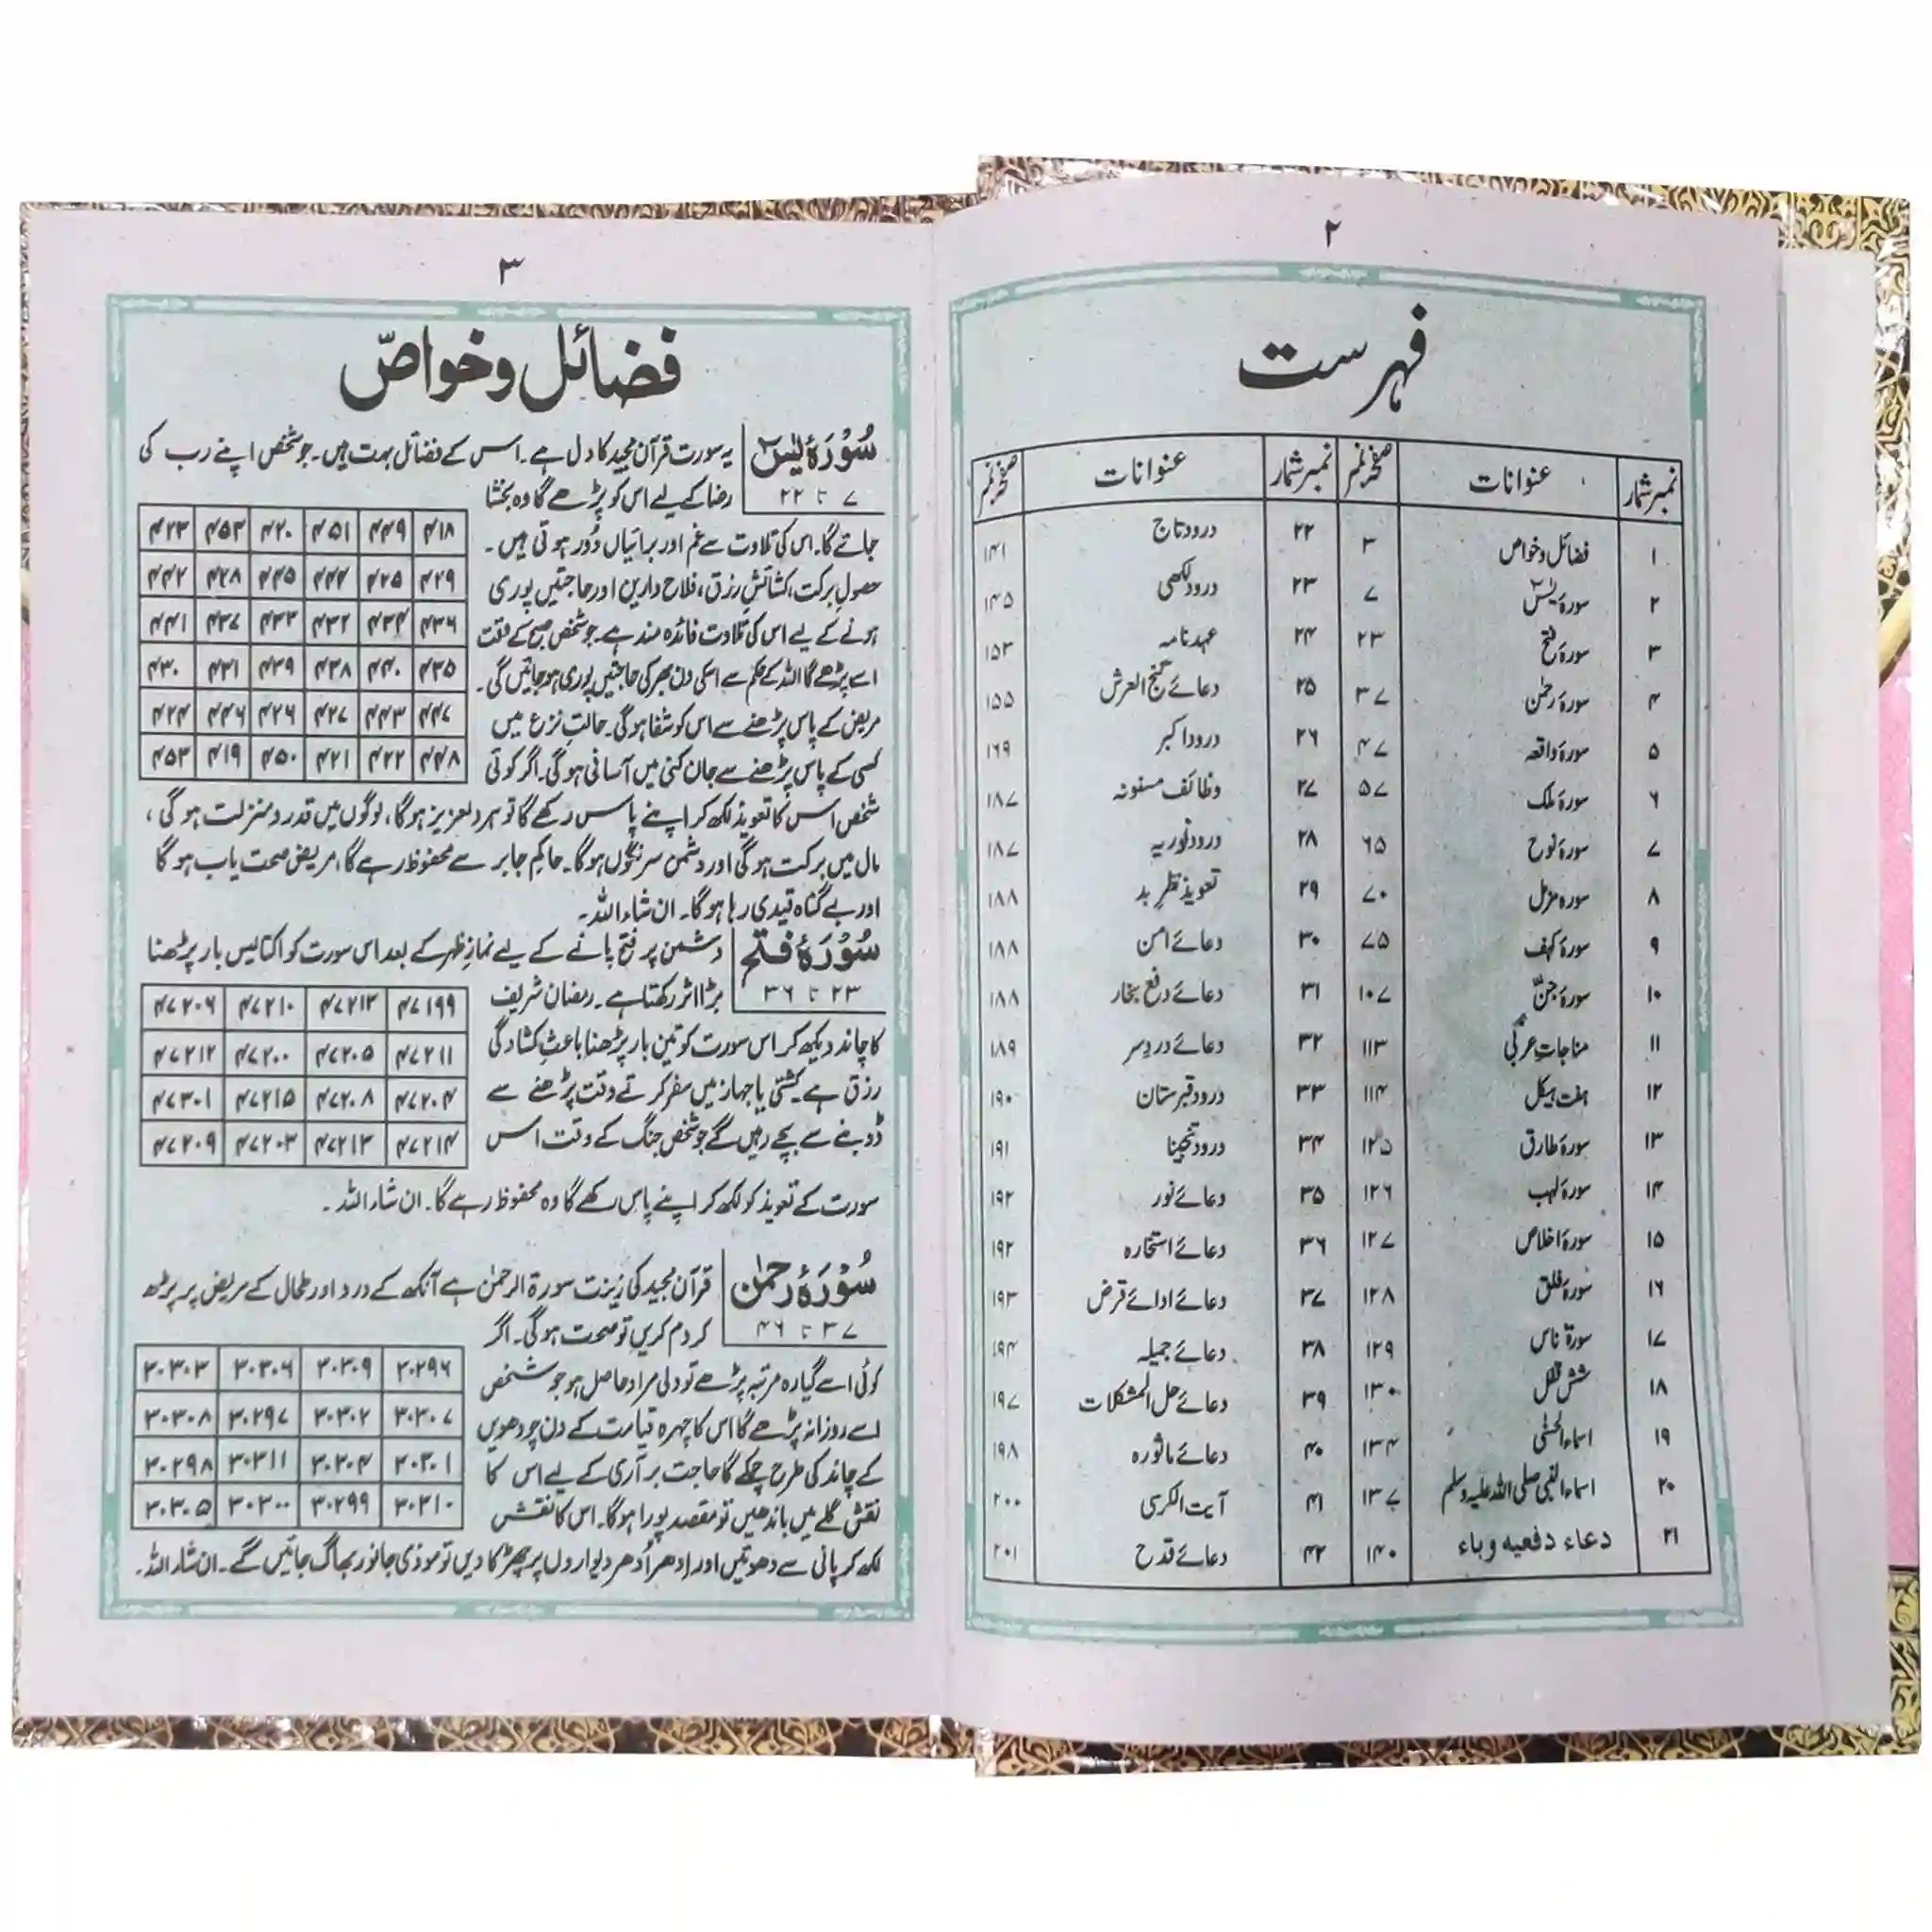 ۲
فہرست
نمبر شمار عنوانات صفحہ نمبر نمبر شمار عنوانات صفحہ نمبر
۱ فضائل و خواص ۳ ۲۲ درود تاج ۱۴۱
۲ سورۂ یٰسٓ ۷ ۲۳ درود لکھی ۱۴۵
۳ سورۂ فتح ۲۳ ۲۴ عہد نامہ ۱۵۳
۴ سورۂ رحمٰن ۳۷ ۲۵ دعائے گنج العرش ۱۵۵
۵ سورۂ واقعہ ۴۷ ۲۶ درود اکبر ۱۶۹
۶ سورۂ ملک ۵۷ ۲۷ وظائف مسنونہ ۱۸۷
۷ سورۂ نوح ۶۵ ۲۸ درود نوریہ ۱۸۷
۸ سورہ مزمل ۷۰ ۲۹ تعویذ نظر بد ۱۸۸
۹ سورۂ کہف ۷۵ ۳۰ دعائے امن ۱۸۸
۱۰ سورۂ جنّ ۱۰۷ ۳۱ دعائے دفع بخار ۱۸۸
۱۱ مناجات عربی ۱۱۳ ۳۲ دعائے درد سر ۱۸۹
۱۲ ہفت ہیکل ۱۱۴ ۳۳ درود قبرستان ۱۹۰
۱۳ سورۂ طارق ۱۲۵ ۳۴ درود تنجینا ۱۹۱
۱۴ سورۂ لہب ۱۲۶ ۳۵ دعائے نور ۱۹۲
۱۵ سورۂ اخلاص ۱۲۷ ۳۶ دعائے استخارہ ۱۹۲
۱۶ سورہ فلق ۱۲۸ ۳۷ دعائے ادائے قرض ۱۹۳
۱۷ سورۃ ناس ۱۲۹ ۳۸ دعائے جمیلہ ۱۹۴
۱۸ شش قفل ۱۳۰ ۳۹ دعائے حل المشکلات ۱۹۷
۱۹ اسماء الحسنٰی ۱۳۴ ۴۰ دعائے ماثورہ ۱۹۸
۲۰ اسماء النبی صلی اللہ علیہ وسلم ۱۳۷ ۴۱ آیت الکرسی ۲۰۰
۲۱ دعاء دفعیہ وباء ۱۴۰ ۴۲ دعائے قدح ۲۰۱
۳
فضائل و خواصّ
سُوْرَۂ یٰسٓ یہ سورت قرآن مجید کا دل ہے۔ اس کے فضائل بہت ہیں۔ جو شخص اپنے رب کی
۷ تا ۲۲ رضا کے لیے اس کو پڑھے گا وہ بخشا
جائے گا۔ اس کی تلاوت سے غم اور برائیاں دُور ہوتی ہیں۔
حصولِ برکت، کشائشِ رزق، فلاح دارین اور حاجتیں پوری
ہونے کے لیے اس کی تلاوت فائدہ مند ہے۔ جو شخص صبح کے وقت
اسے پڑھے گا اللہ کے حکم سے اسکی دن بھر کی حاجتیں پوری ہو جائیں گی۔
مریض کے پاس پڑھنے سے اس کو شفا ہوگی۔ حالتِ نزع میں
کسی کے پاس پڑھنے سے جان کنی میں آسانی ہوگی۔ اگر کوئی
۴۱۸ ۴۴۹ ۴۵۱ ۴۲۰ ۴۵۳ ۴۲۳
۴۲۹ ۴۲۵ ۴۴۴ ۴۴۵ ۴۲۸ ۴۴۲
۴۳۶ ۴۳۴ ۴۳۲ ۴۳۳ ۴۳۷ ۴۴۱
۴۳۵ ۴۴۰ ۴۳۸ ۴۳۹ ۴۳۱ ۴۳۰
۴۴۷ ۴۴۳ ۴۲۷ ۴۲۶ ۴۴۶ ۴۲۴
۴۴۸ ۴۲۲ ۴۲۱ ۴۵۰ ۴۱۹ ۴۵۳
شخص اس کا تعویذ لکھ کر اپنے پاس رکھے گا تو ہر دلعزیز ہوگا، لوگوں میں قدر و منزلت ہوگی،
مال میں برکت ہوگی اور دشمن سرنگوں ہوگا۔ حاکم جابر سے محفوظ رہے گا، مریض صحت یاب ہوگا
اور بے گناہ قیدی رہا ہوگا۔ ان شاء اللہ۔
سُوْرَۂ فتح دشمن پر فتح پانے کے لیے نمازِ ظہر کے بعد اس سورت کو اکتالیس بار پڑھنا
۲۳ تا ۳۶ بڑا اثر رکھتا ہے۔ رمضان شریف
کا چاند دیکھ کر اس سورت کو تین بار پڑھنا باعثِ کشادگی
رزق ہے۔ کشتی یا جہاز میں سفر کرتے وقت پڑھنے سے
ڈوبنے سے بچے رہیں گے جو شخص جنگ کے وقت اس
۴۷۱۹۹ ۴۷۲۱۲ ۴۷۲۱۰ ۴۷۲۰۶
۴۷۲۱۱ ۴۷۲۰۵ ۴۷۲۰۰ ۴۷۲۱۲
۴۷۲۰۴ ۴۷۲۰۸ ۴۷۲۱۵ ۴۷۳۰۱
۴۷۲۱۴ ۴۷۲۱۳ ۴۷۲۰۳ ۴۷۲۰۹
سورت کے تعویذ کو لکھ کر اپنے پاس رکھے گا وہ محفوظ رہے گا۔ ان شاء اللہ۔
سُوْرَۂ رحمٰن قرآن مجید کی زینت سورۃ الرحمٰن ہے آنکھ کے درد اور طحال کے مریض پر پڑھ
۳۷ تا ۴۶ کر دم کریں تو صحت ہوگی۔ اگر
کوئی اسے گیارہ مرتبہ پڑھے تو دلی مراد حاصل ہو جو شخص
اسے روزانہ پڑھے گا اس کا چہرہ قیامت کے دن چودھویں
کے چاند کی طرح چمکے گا حاجت برآری کے لیے اس کا
نقش گلے میں باندھیں تو مقصد پورا ہوگا۔ اس کا نقش
۳۰۲۹۶ ۳۰۳۰۹ ۳۰۳۰۶ ۳۰۳۰۳
۳۰۳۰۷ ۳۰۳۰۲ ۳۰۲۹۷ ۳۰۳۰۸
۳۰۳۰۱ ۳۰۳۰۴ ۳۰۳۱۱ ۳۰۲۹۸
۳۰۳۱۰ ۳۰۲۹۹ ۳۰۳۰۰ ۳۰۳۰۵
لکھ کر پانی سے دھوئیں اور اِدھر اُدھر دیواروں پر چھڑکا دیں تو موذی جانور بھاگ جائیں گے۔ ان شاء اللہ۔